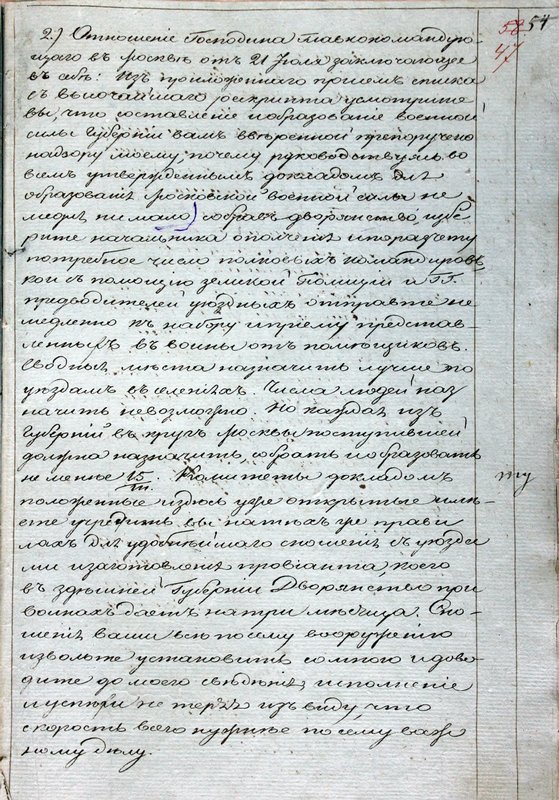 58 54
47
2.) Отношеніе Господина Главнокомандую-
щаго въ Москвѣ отъ 21 Іюля заключающее
въ себѣ: Изъ приложеннаго присемъ списка
съ высочайшаго рескрипта усмотрите
вы, что составленіе и образованіе военной
силы Губерніи вамъ ввѣренной препоручено
надзору моему, почему руководствуясь во
всемъ утвержденнымъ докладомъ для
образованія Московской военной силы не
медля ни мало) собравъ дворянство, избе-
рите начальника ополченія и по разчету
потребное число полковыхъ командировъ,
кои съ помощію земской Полиціи и ГГ.
предводителей уѣздныхъ отправте не
медленно къ набору и пріему представ-
ленныхъ въ воины отъ помѣщиковъ.
Сводныя мѣста назначить лучше по
уѣздамъ въ селеніяхъ. Числа людей наз
начить невозможно. Но каждая изъ
Губерній въ кругъ Москвы поступившей
должна назначить, собрать и образовать
не менѣе 15/т. Комитеты докладомъ
положенные и здѣсь уже открытые имѣ-
ете учредить вы на тѣхъ же прави
лахъ для удобнѣйшаго сношенія съ уѣзда
ми и заготовленія провіанта, коего
въ здѣшней Губерніи Дворянство при
воинахъ даетъ на три мѣсяца. Сно-
шенія ваши всѣ по сему вооруженію
извольте установить со мною и дово-
дите до моего свѣденія, исполненіе
и успѣхи не теряя изъ виду, что
скорость всего нужнѣе по сему важ
ному дѣлу.